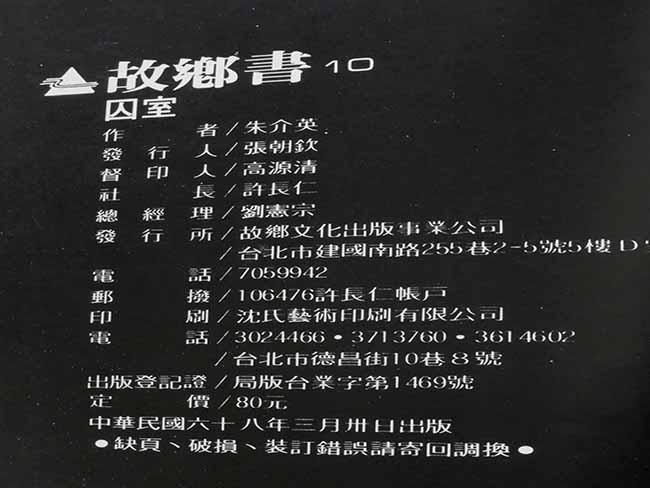 故鄉書 10
囚室
作者/朱介英
發行人/張朝欽
督印人/高源清
社長/許長仁
總經理/劉憲宗
發行所/故鄉文化出版事業公司
/台北市建國南路255巷2-5號5樓D
電話/7059942
郵撥/106476許長仁帳戶
印刷/沈氏藝術印刷有限公司
電話/3024466•3713760•3614602
/台北市德昌街10巷8號
出版登記證/局版台業字第1469號
定價/80元
中華民國六十八年三月卅日出版
●缺頁、破損、裝訂錯誤請寄回調換●